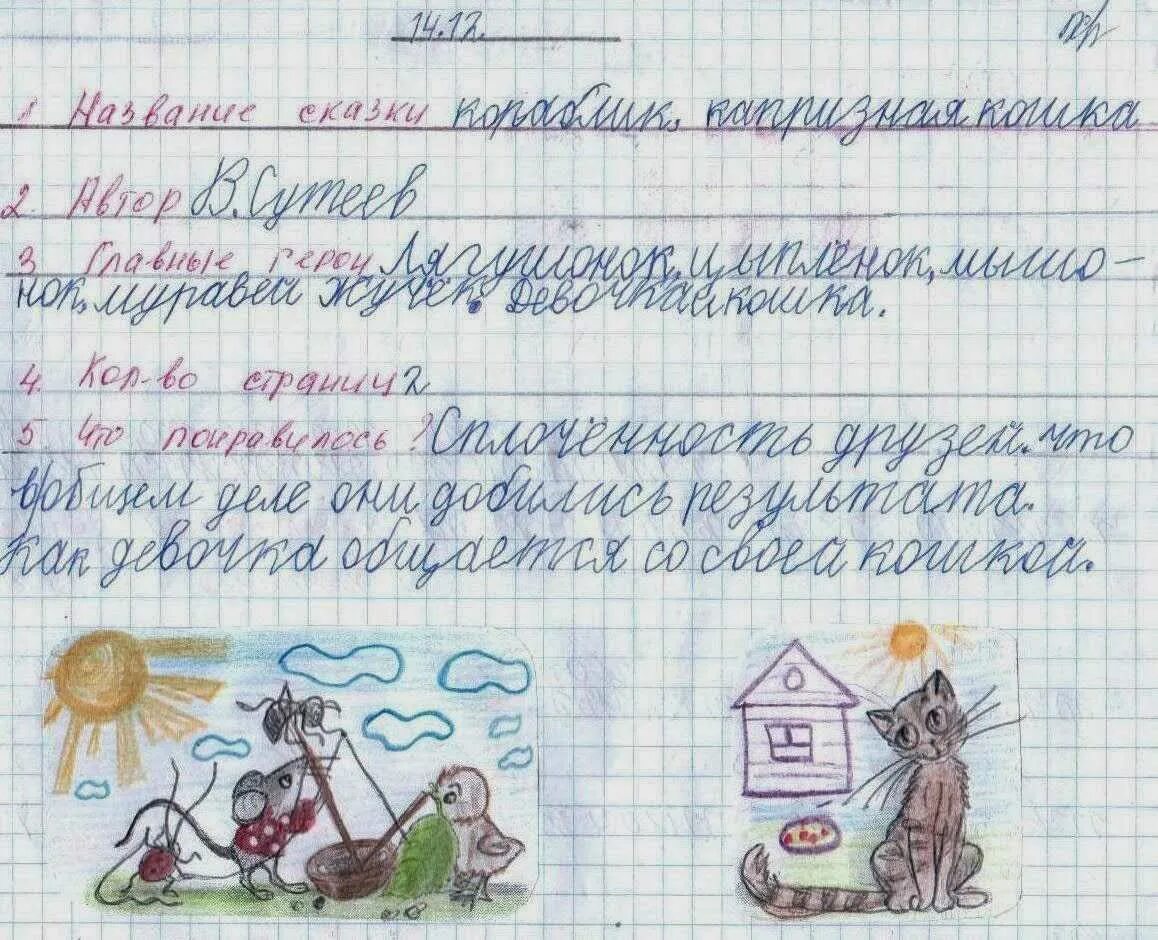 14.12.
1 Название сказки кораблик, капризная кошка
2. Автор В. Сутеев
3 Главные герои Лягушонок, цыплёнок, мышо-
нок, муравей жучёк. Девочка и кошка.
4. Кол-во страниц 2
5. Что понравилось? Сплочённость друзей. что
в общем деле они добились результата.
Как девочка общается со своей кошкой.